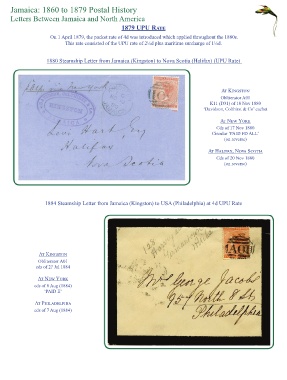 Jamaica: 1860 to 1879 Postal History
Letters Between Jamaica and North America
1879 UPU RATE
On 1 April 1879, the packet rate of 4d was introduced which applied throughout the 1880s.
This rate consisted of the UPU rate of 2½d plus maritime surcharge of 1½d.
1880 Steamship Letter from Jamaica (Kingston) to Nova Scotia (Halifax) (UPU Rate)
Levi Hart Esq
Halifax
Nova Scotia
AT KINGSTON
Obliterator A01
K11 (D11) of 10 Nov 1880
'Davidson, Colthirst & Co' cachet
AT NEW YORK
Cds of 17 Nov 1880
Circular 'PAID TO ALL'
(on reverse)
AT HALIFAX, NOVA SCOTIA
Cds of 20 Nov 1880
(on reverse)
1884 Steamship Letter from Jamaica (Kingston) to USA (Philadelphia) at 4d UPU Rate
AT KINGSTON
Obliterator A01
cds of 27 Jul 1884
AT NEW YORK
cds of 6 Aug (1884)
'PAID 2'
AT PHILADELPHIA
cds of 7 Aug (1884)
Mrs George Jacobs
957 North 8 St
Philadelphia